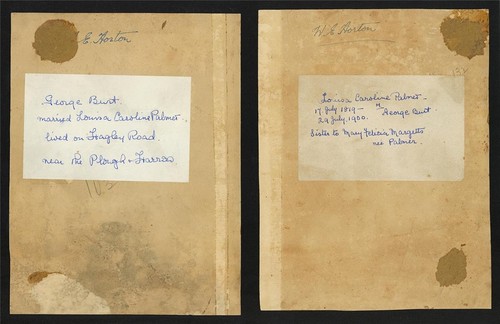 E. Horton
George Burt
married Louisa Caroline Palmer
lived on Hagley Road.
near the Plough & Harrow
W E Horton
Louisa Caroline Palmer -
17 July 1819 - m George Burt
29 July, 1900.
Sister to Mary Felicia Margetts
nee Palmer.